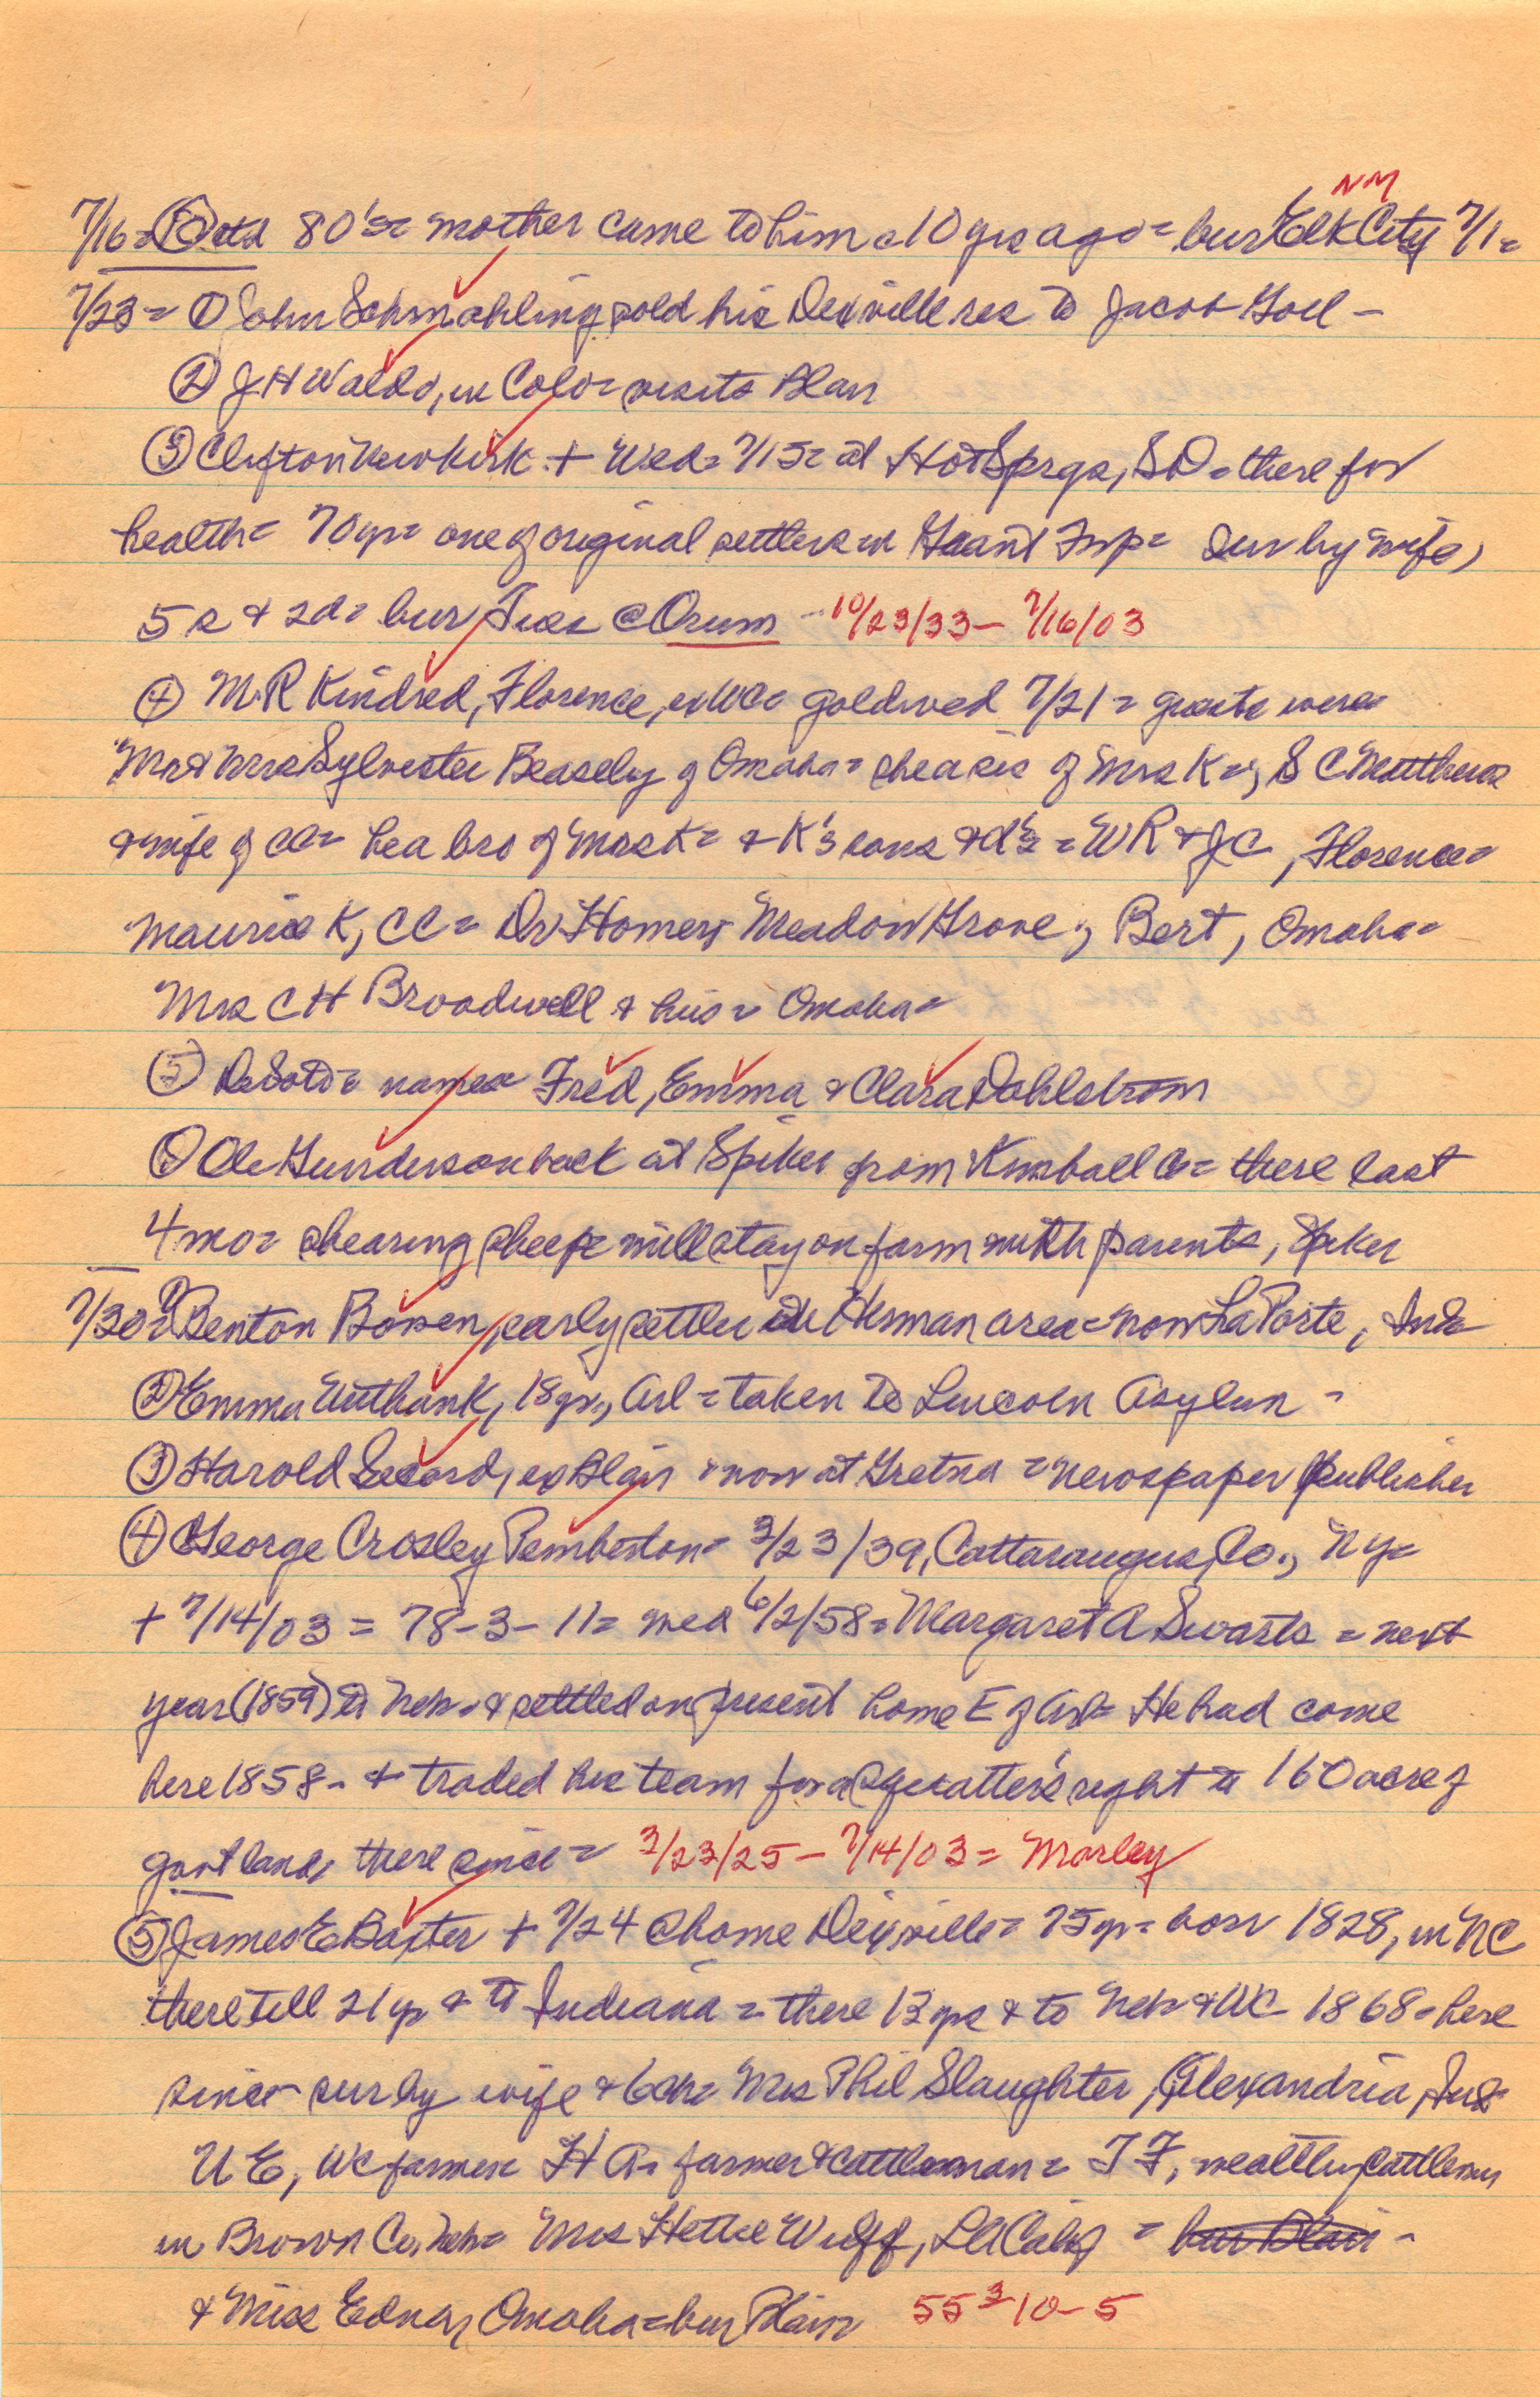 NM
7/16 = (5) ctd 80's = mother came to him c 10 yrs ago = bur Elk City 7/1 =
7/23 = ① John Schmahling sold his Dexville res to Jacob Goll -
② J H Waldo, in Colo = visits Blair
③ Clifton Newkirk + Wed = 7/15 = at Hot Sprgs, SD = there for
health = 70 yr = one of original settlers in Grant Twp = sur by wife,
5 s & 2 d = bur Tues @ Orum - 10/23/33 - 7/16/03
④ M.R Kindred, Florence, ex WC = gold wed 7/21 = guests were
Mr & Mrs Sylvester Beasely of Omaha = she a sis of Mrs K =, S C Matthews
& wife of CC = he a bro of Mrs K = & K's sons & d's = W R & J C, Florence =
Maurice K, CC = Dr Homer, Meadow Grove, Bert, Omaha =
Mrs C H Broadwell & hus = Omaha =
⑤ DeSoto = names Fred, Emma & Clara Dahlstrom
⑥ Ole Gunderson back at Spiker from Kimball Co = there last
4 mo = shearing sheep = will stay on farm with parents, Spiker
7/30 = ① Benton Bowen, early settler in Herman area = now LaPorte, Ind
② Emma Unthank, 18 yr, Arl = taken to Lincoln Asylum -
③ Harold Secord, ex Blair = now at Gretna = newspaper publisher
④ George Crosley Pemberton = 3/23/39, Cattaraugus, Co., NY =
+ 7/14/03 = 78-3-11 = wed 6/2/58 = Margaret A Swarts = next
year (1859) to Neb = & settled on present home E of Arl = He had come
here 1858 - & traded his team for a squatter's right to 160 acre of
govt land, there since = 3/23/25 - 7/14/03 = Marley
⑤ James E Baxter + 7/24 @ home Dexville = 75 yr = born 1828, in NC
there till 21 yr & to Indiana = there 13 yrs & to Neb & WC 1868 = here
since = sur by wife & 6 ch = Mrs Phil Slaughter, Alexandria, Ind
U E, WC farmer = H A = farmer & cattleman = T F, wealthy cattleman
in Brown Co, Neb = Mrs Hettie Wulff, LA Calif = bur Blair -
& Miss Edna, Omaha = bur Blair 55 3/10-5